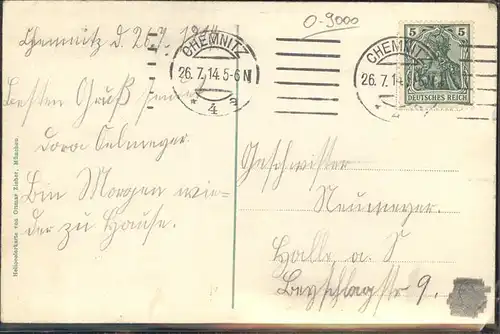 Chemnitz d. 26.7. 1914
Besten Gruß
Dora
Bin Morgen wie-
der zu Hause.
O-9000
CHEMNITZ
26.7.14.5-6N
* 4
CHEMNITZ
26.7.14
5 5
DEUTSCHES REICH
Geschwister
Neumeyer.
Halle a. S
Beyschlagstr 9.
Heliocolorkarte von Ottmar Zieher, München.